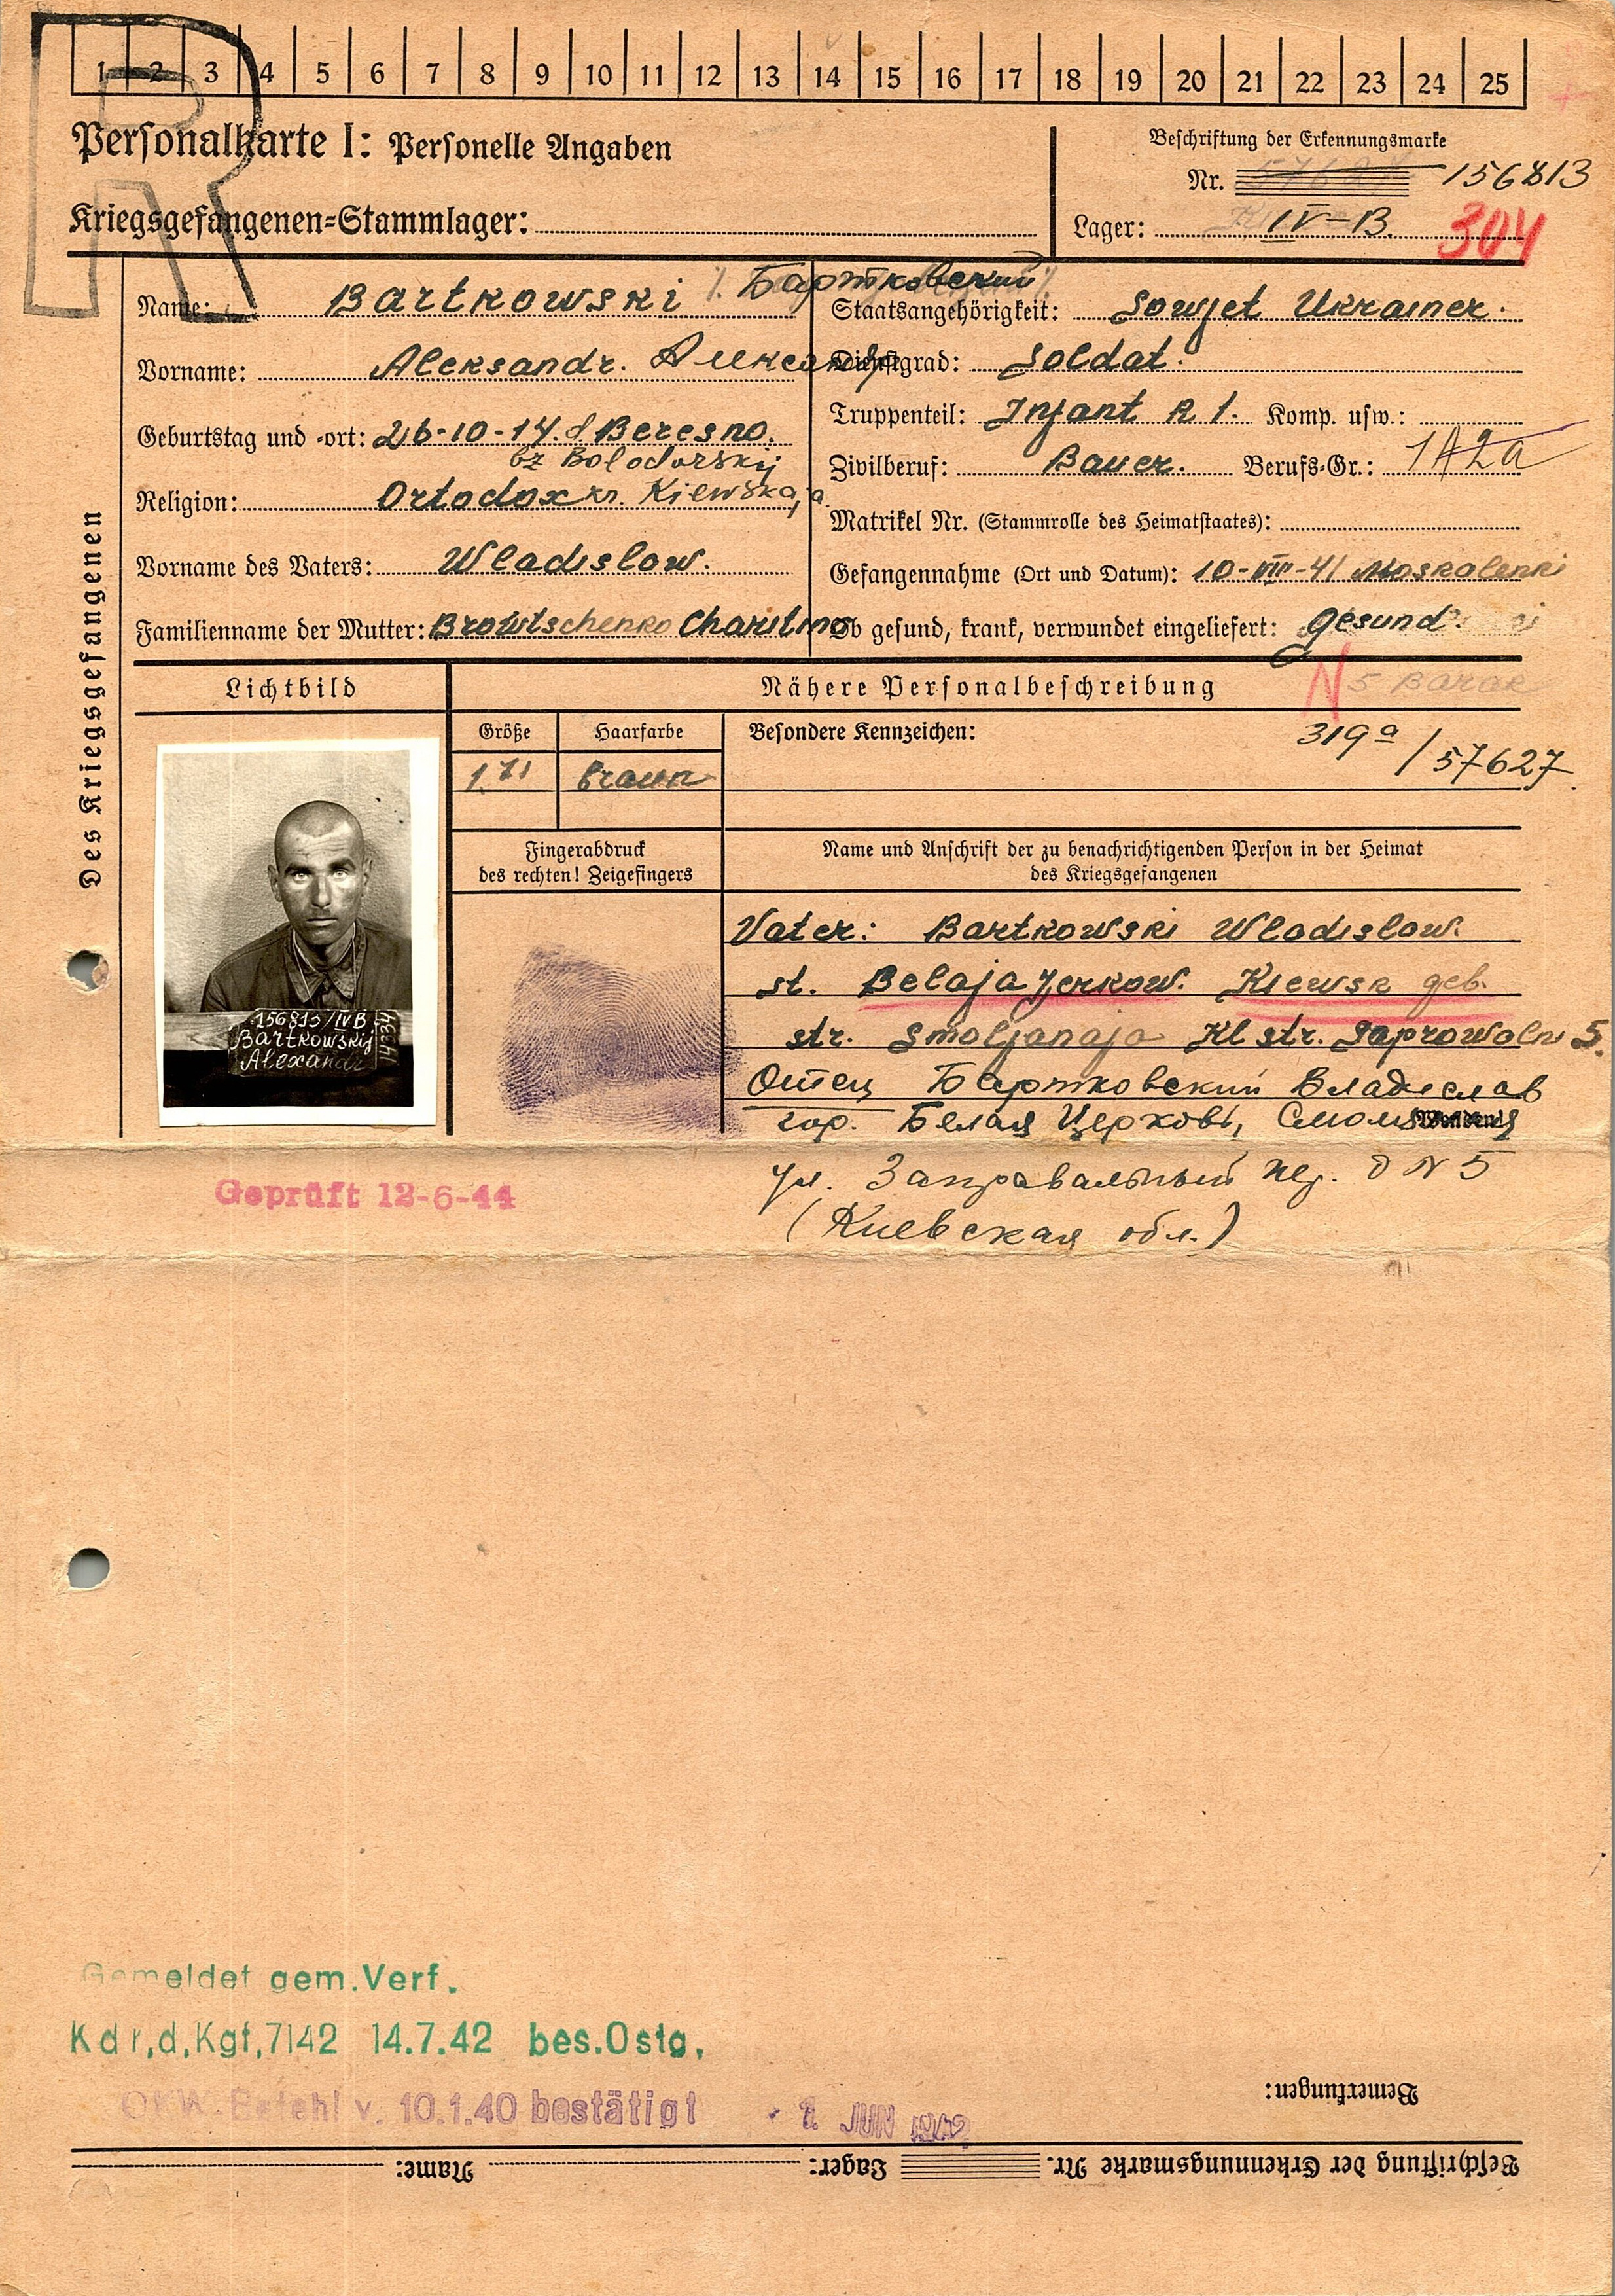 1 2 3 4 5 6 7 8 9 10 11 12 13 14 15 16 17 18 19 20 21 22 23 24 25
R
Personalkarte I: Personelle Angaben
Beschriftung der Erkennungsmarke
Nr. 156813
Kriegsgefangenen=Stammlager:
Lager: IV-B. 304
Des Kriegsgefangenen
Name: Bartkowski Бартковский
Vorname: Aleksandr.
Geburtstag und =ort: 26-10-14. Beresno.
bz Bolodarskij
Religion: Ortodox kr. Kiewskaja
Vorname des Vaters: Wladislow.
Familienname der Mutter: Browtschenko Charitina
Staatsangehörigkeit: Sowjet Ukrainer.
Dienstgrad: Soldat.
Truppenteil: Infant R 1. Komp. usw.:
Zivilberuf: Bauer. Berufs=Gr.: 1A2a
Matrikel Nr. (Stammrolle des Heimatstaates):
Gefangennahme (Ort und Datum): 10-VIII-41 Moskalenki
Ob gesund, krank, verwundet eingeliefert: gesund.
Lichtbild
Nähere Personalbeschreibung
N 5 Barak
Größe
Haarfarbe
Besondere Kennzeichen:
319a / 57627
1.71
braun
Fingerabdruck
des rechten! Zeigefingers
Name und Anschrift der zu benachrichtigenden Person in der Heimat
des Kriegsgefangenen
156813/IVB
Bartkowskij
Alexandr
Vater: Bartkowski Wladislow.
st. Belaja Jerkow. Kiewsk geb.
str. Smoljanaja Kl str. Saprowoln 5.
Отец Бартковский Владислав
гор. Белая Церковь,
ул. Заправальный пер. д N 5
(Киевская обл.)
Geprüft 12-6-44
Gemeldet gem. Verf.
Kdr.d.Kgf.7142 14.7.42 bes.Ostg.
OKW. Befehl v. 10.1.40 bestätigt JUN 1942
Bemerkungen:
Beschriftung der Erkennungsmarke Nr. Lager: Name: